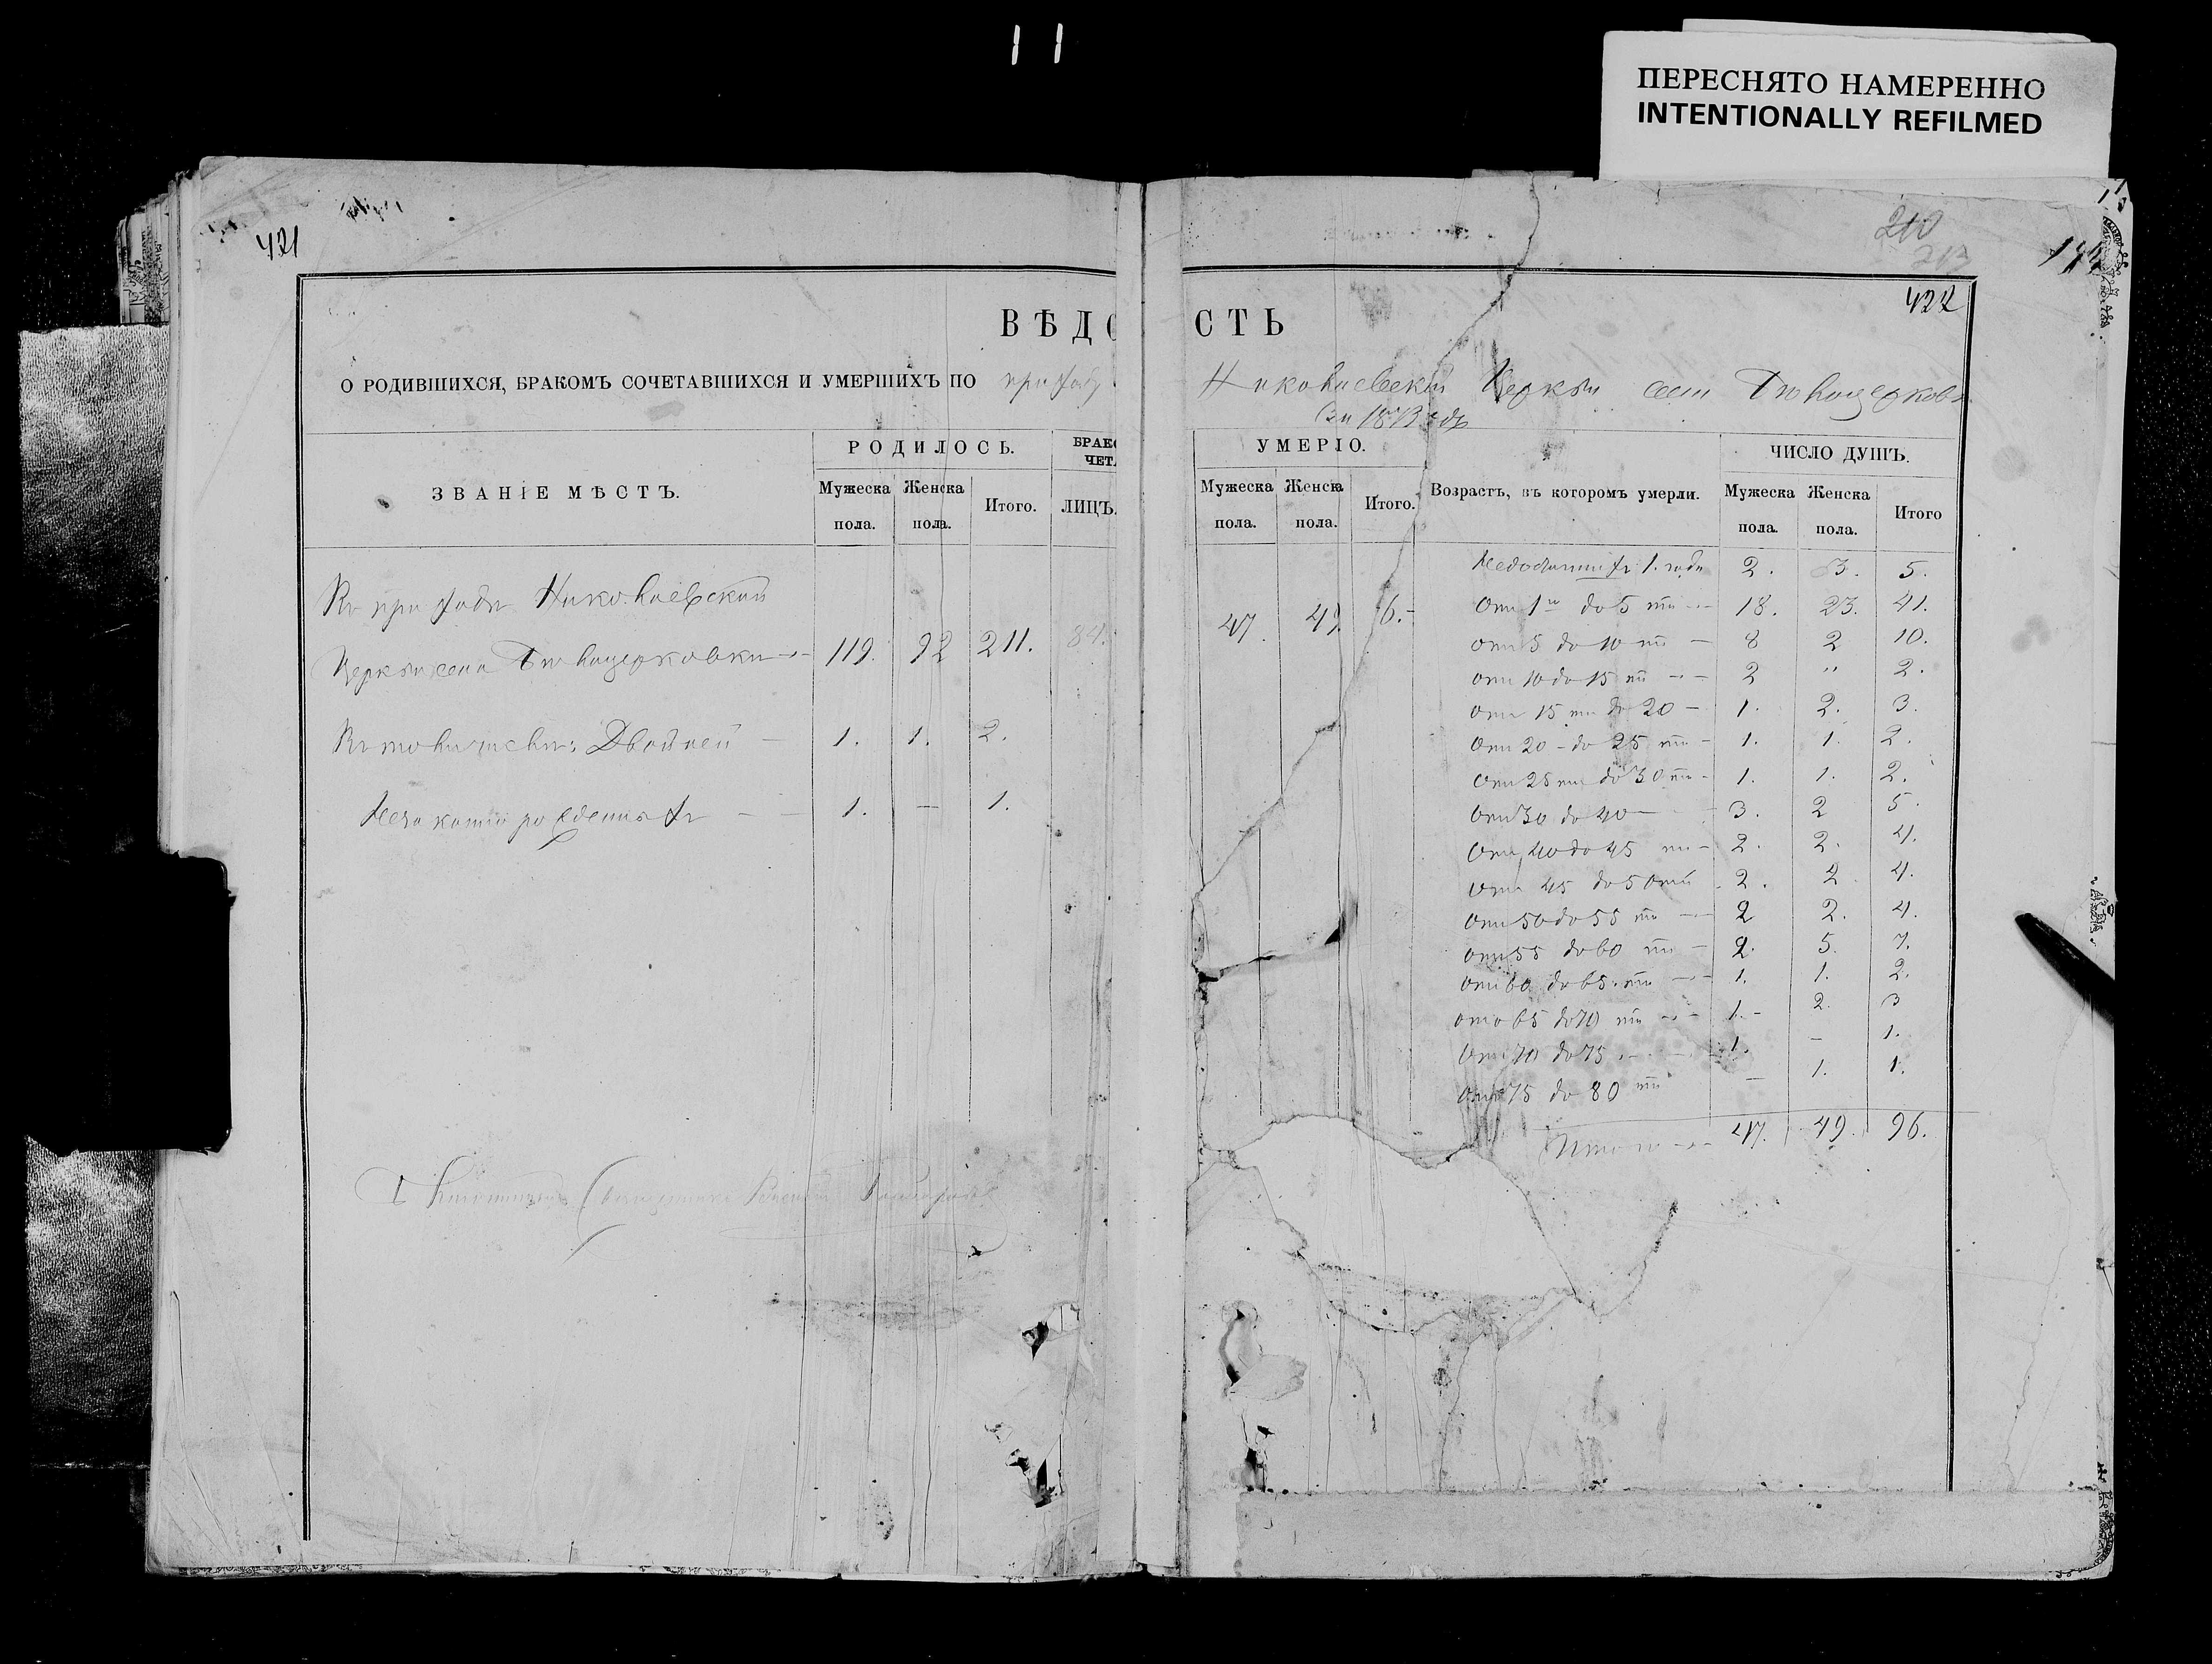 11
ПЕРЕСНЯТО НАМЕРЕННО
INTENTIONALLY REFILMED
421
210
213
422
ВѢДО СТЬ
О РОДИВШИХСЯ, БРАКОМЪ СОЧЕТАВШИХСЯ И УМЕРШИХЪ ПО приходу Николаевской Церкви села Бѣлоцерковки
за 1873 годъ
ЗВАНІЕ МѢСТЪ. РОДИЛОСЬ. БРАКО ЧЕТА УМЕРЛО. ЧИСЛО ДУШЪ.
Мужеска пола. Женска пола. Итого. ЛИЦЪ. Мужеска пола. Женска пола. Итого. Возрастъ, въ которомъ умерли. Мужеска пола. Женска пола. Итого
Въ приходѣ Николаевской
Церкви села Бѣлоцерковки 119. 92 211. 84.
Въ томъ числѣ: Двойней 1. 1. 2.
Незаконно рожденныхъ 1. — 1.
47. 49. 6.
Недожившихъ 1. года 2. 3. 5.
Отъ 1го до 5 ти 18. 23. 41.
отъ 5 до 10 ти 8 2 10.
отъ 10 до 15 ти 2 " 2.
отъ 15 ти до 20 1. 2. 3.
отъ 20 до 25 ти 1. 1. 2.
отъ 25 ти до 30 ти 1. 1. 2.
отъ 30 до 40 3. 2 5.
отъ 40 до 45 ти 2. 2. 4.
отъ 45 до 50 ти 2. 2 4.
отъ 50 до 55 ти 2 2. 4.
отъ 55 до 60 ти 2. 5. 7.
отъ 60 до 65 ти 1. 1. 2.
отъ 65 до 70 ти 1. 2. 3
отъ 70 до 75 1. — 1.
отъ 75 до 80 ти — 1. 1.
Итого 47. 49. 96.